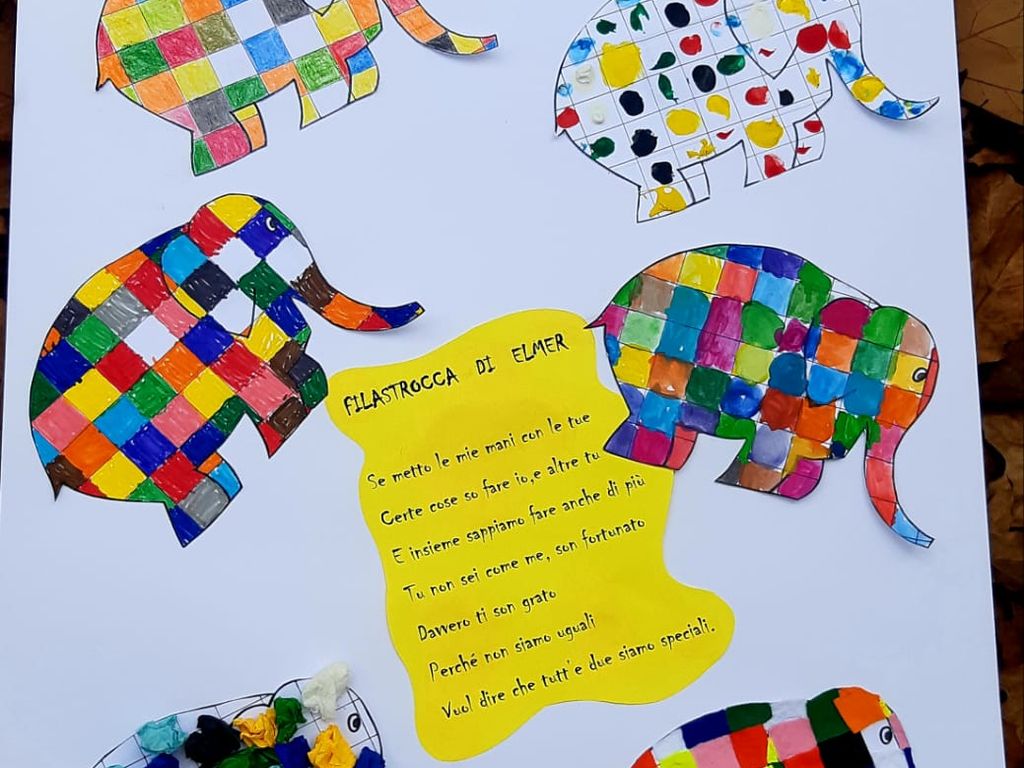 FILASTROCCA DI ELMER
Se metto le mie mani con le tue
Certe cose so fare io,e altre tu
E insieme sappiamo fare anche di più
Tu non sei come me, son fortunato
Davvero ti son grato
Perché non siamo uguali
Vuol dire che tutt'e due siamo speciali.